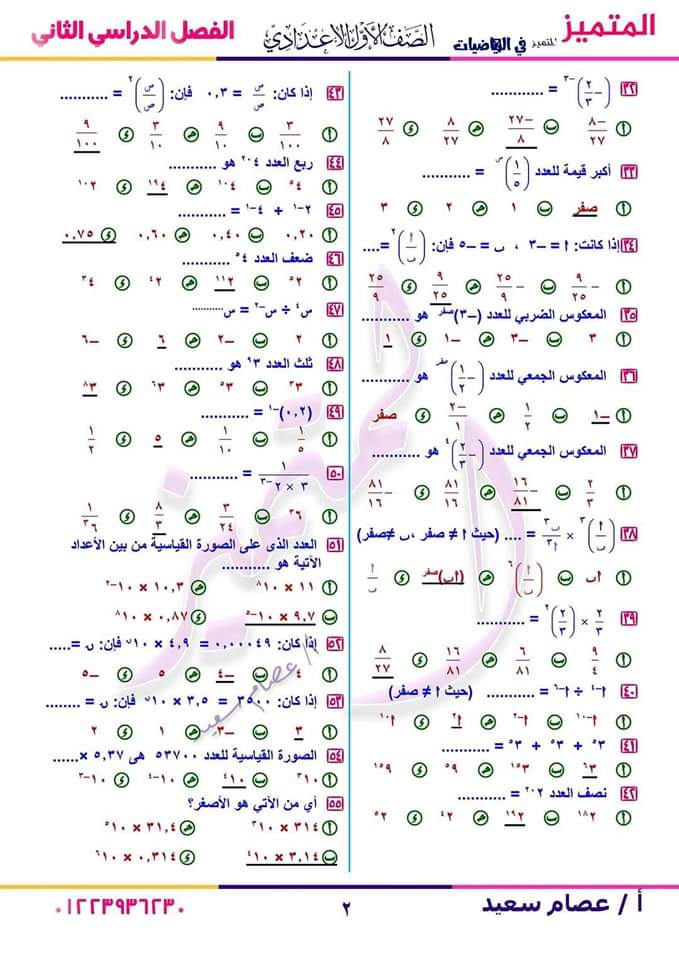 المتميز
المتميز في الرياضيات
الصف الأول الإعدادي
الفصل الدراسي الثاني
٣٢ (−٢/٣)^−٣ = ............
أ −٨/٢٧ ب −٢٧/٨ ج ٨/٢٧ د ٢٧/٨
٣٣ أكبر قيمة للعدد (١/٥)^س = ............
أ صفر ب ١ ج ٢ د ٣
٣٤ إذا كانت: أ = −٣ ، ب = −٥ فإن: (أ/ب)^٢ = ....
أ −٩/٢٥ ب −٢٥/٩ ج ٩/٢٥ د ٢٥/٩
٣٥ المعكوس الضربي للعدد (−٣)^صفر هو ............
أ ٣ ب −٣ ج −١ د ١
٣٦ المعكوس الجمعي للعدد (−١/٢)^صفر هو ............
أ −١ ب ١/٢ ج −٢/١ د صفر
٣٧ المعكوس الجمعي للعدد (−٢/٣)^٤ هو ............
أ ٢/٣ ب −١٦/٨١ ج ١٦/٨١ د −٨١/١٦
٣٨ (أ/ب)^٣ × ب^٣/أ^٣ = .... (حيث أ ≠ صفر ، ب ≠ صفر)
أ أب ب (أ/ب)^٦ ج (أب)^صفر د أ/ب
٣٩ ٢/٣ × (٢/٣)^٢ = ............
أ ٩/٤ ب ٦/٨١ ج ١٦/٨١ د ٨/٢٧
٤٠ أ^−٤ ÷ أ^−٦ = ............ (حيث أ ≠ صفر)
أ أ^−١٠ ب أ^−٢ ج أ^٢ د أ^١٠
٤١ ٣^٥ + ٣^٥ + ٣^٥ = ............
أ ٣^٦ ب ٣^١٥ ج ٩^٥ د ٩^١٥
٤٢ نصف العدد ٢^٢٠ = ............
أ ٢^١٨ ب ٢^١٩ ج ٢^٤ د ٢^٥
٤٣ إذا كان: س/ص = ٠,٣ فإن: (س/ص)^٢ = ............
أ ٣/١٠٠ ب ٩/١٠ ج ٣/١٠ د ٩/١٠٠
٤٤ ربع العدد ٤^٢٠ هو ............
أ ٤^٥ ب ٤^١٠ ج ٤^١٩ د ٢^١٠
٤٥ ٢^−١ + ٤^−١ = ............
أ ٠,٢٠ ب ٠,٤٠ ج ٠,٦٠ د ٠,٧٥
٤٦ ضعف العدد ٤^٥ ............
أ ٢^٥ ب ٢^١١ ج ٢^٤ د ٤^٣
٤٧ س^٤ ÷ س^−٢ = س^............
أ ٢ ب −٢ ج ٦ د −٦
٤٨ ثلث العدد ٣^٩ هو ............
أ ٣^٣ ب ٣^٥ ج ٣^٦ د ٣^٨
٤٩ (٠,٢)^−١ = ............
أ ١/٥ ب ١/١٠ ج ٥ د ١/٢
٥٠ ١/(٣ × ٢^−٣) = ............
أ ٦^٣ ب ٣/٢٤ ج ٨/٣ د ١/٦^٣
٥١ العدد الذى على الصورة القياسية من بين الأعداد
الآتية هو ............
أ ١١ × ١٠^٨ ج ١٠,٣ × ١٠^−٢
ب ٩,٧ × ١٠^−٥ د ٠,٨٧ × ١٠^٨
٥٢ إذا كان: ٠,٠٠٠٤٩ = ٤,٩ × ١٠^ن فإن: ن = .....
أ ٤ ب −٤ ج ٥ د −٥
٥٣ إذا كان: ٣٥٠٠ = ٣,٥ × ١٠^ن فإن: ن = ........
أ ٣ ب −٣ ج ١ د ٢
٥٤ الصورة القياسية للعدد ٥٣٧٠٠ هى ٥,٣٧ × ......
أ ١٠^٣ ب ١٠^٤ ج ١٠^−٤ د ١٠^−٣
٥٥ أي من الآتي هو الأصغر؟
أ ٣١٤ × ١٠^٣ ج ٣١,٤ × ١٠^٥
ب ٣,١٤ × ١٠^٤ د ٠,٣١٤ × ١٠^٦
المتميز
أ/ عصام سعيد
أ / عصام سعيد
٢
٠١٢٢٣٩٣٦٢٣٠